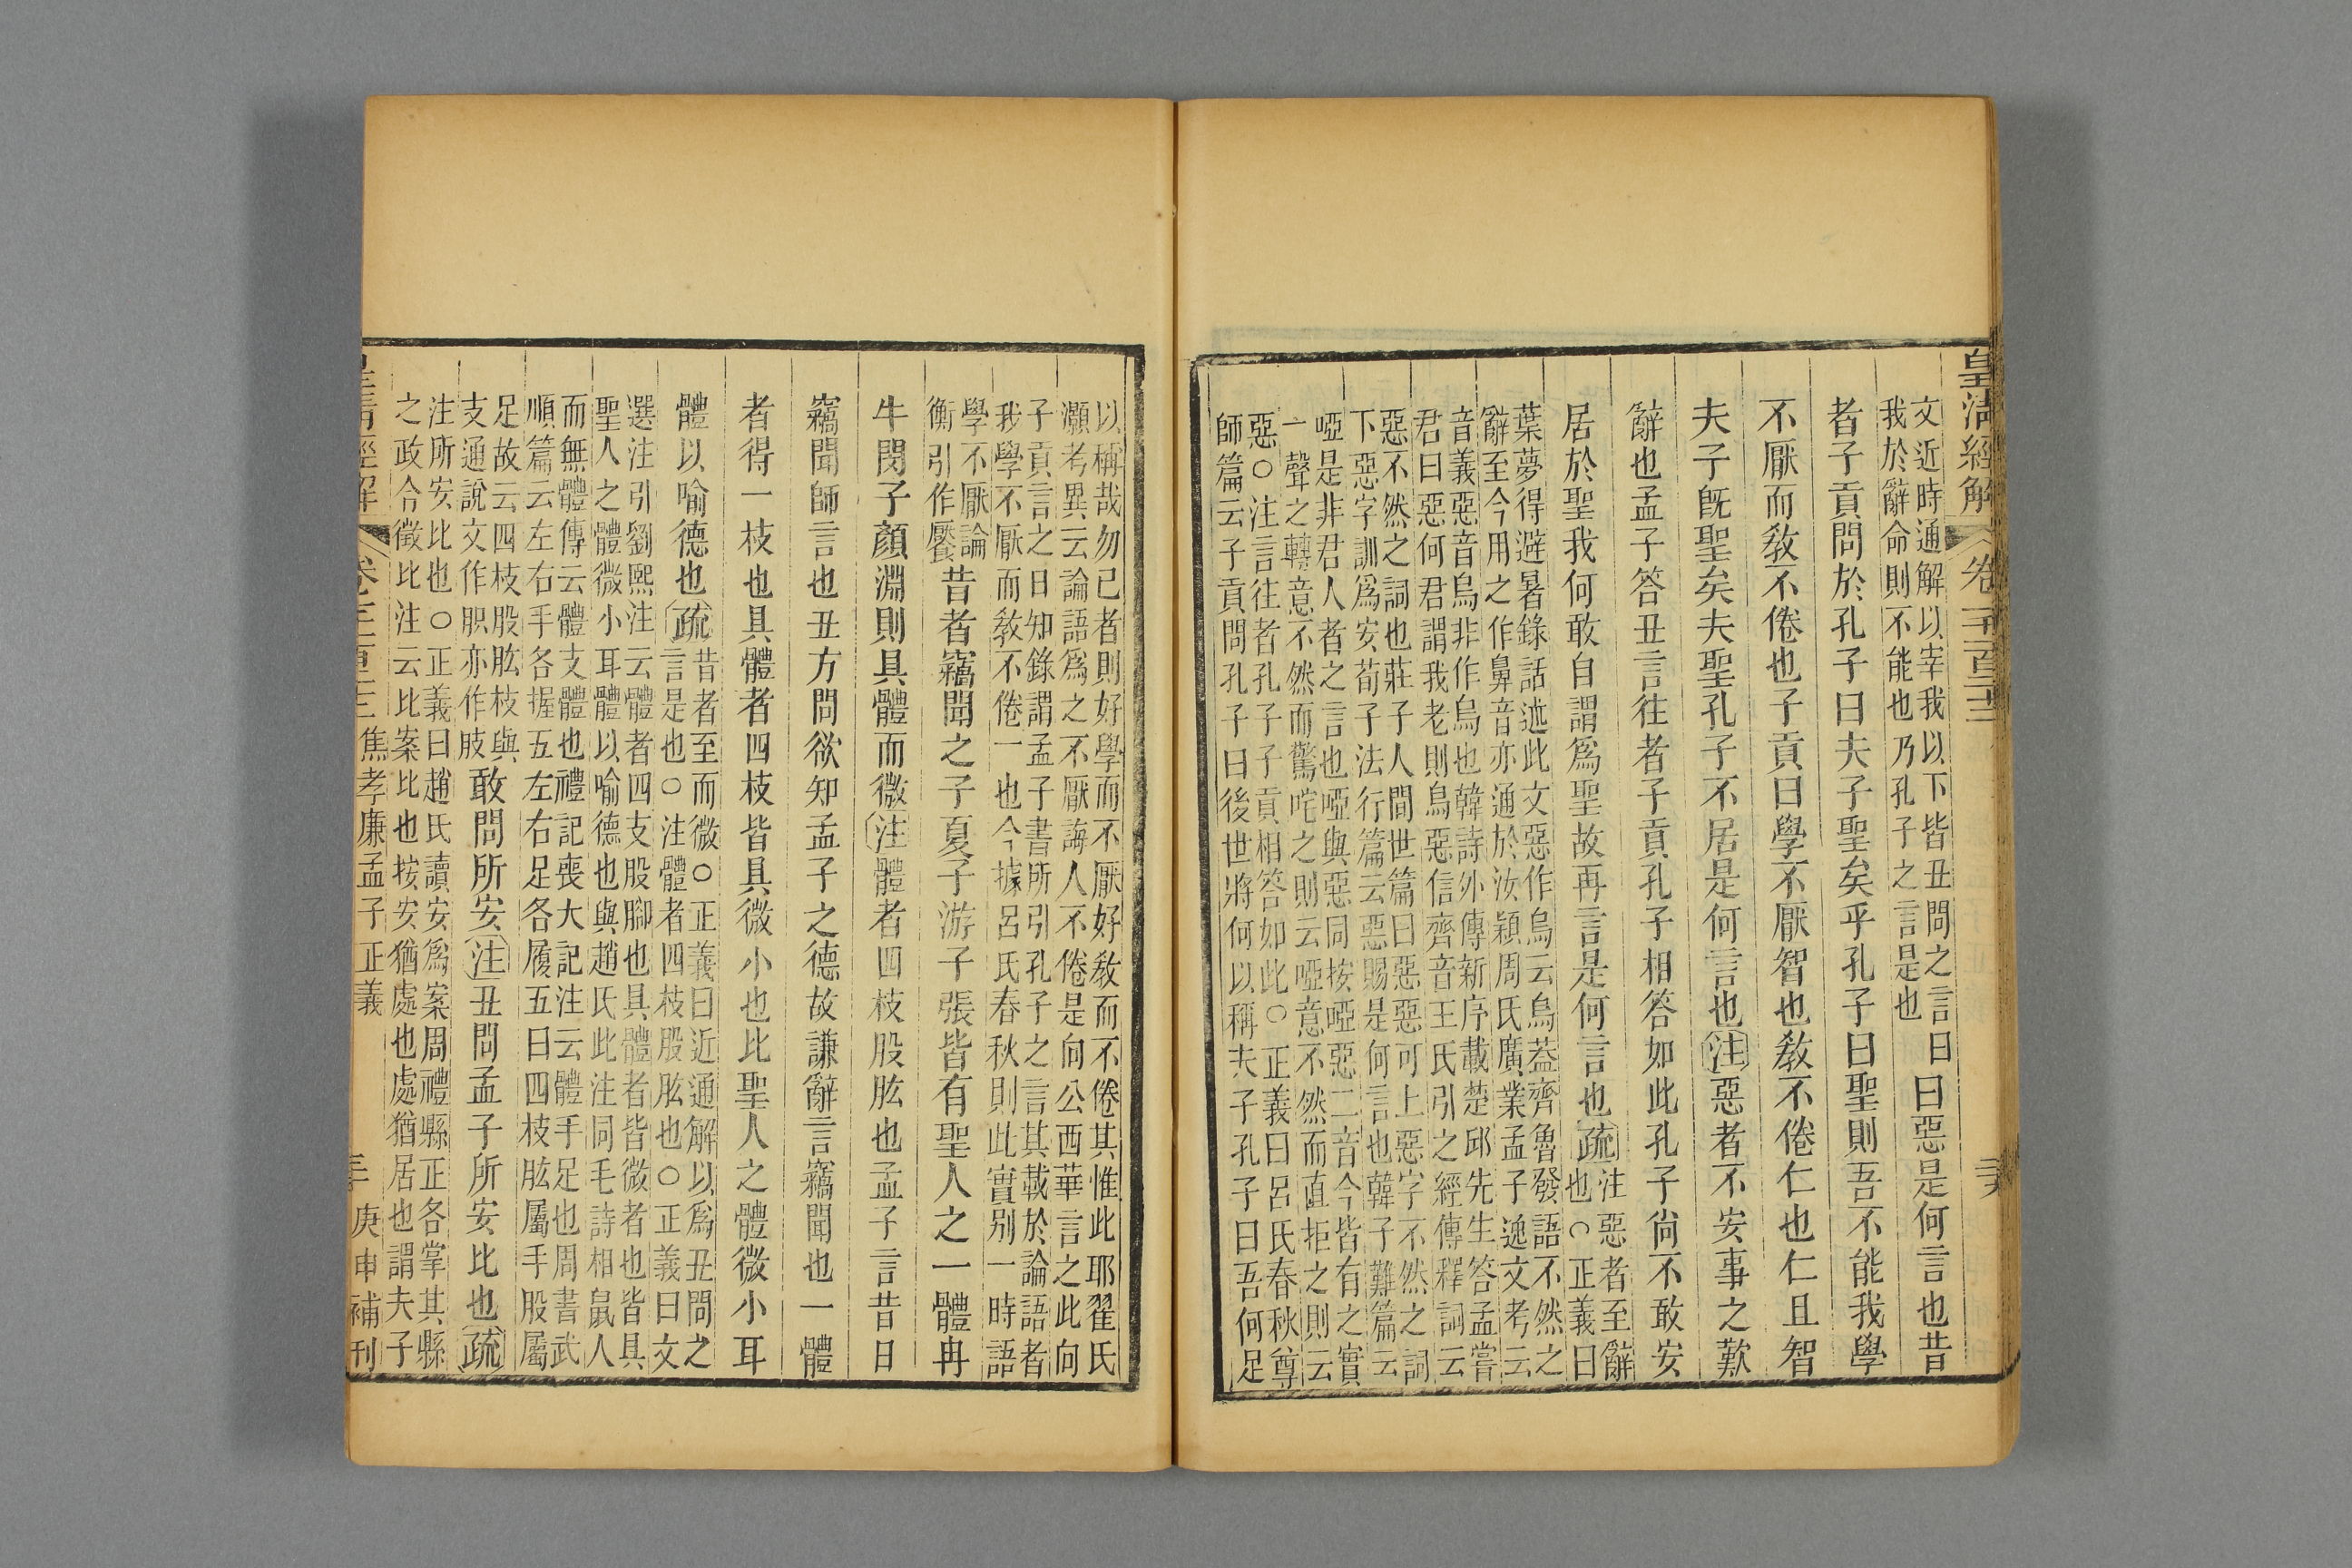 皇清經解
卷一千一百二十二
文近時通解以宰我以下皆丑問之言曰
我於辭命則不能也乃孔子之言是也
曰惡是何言也昔
者子貢問於孔子曰夫子聖矣乎孔子曰聖則吾不能我學
不厭而敎不倦也子貢曰學不厭智也敎不倦仁也仁且智
夫子旣聖矣夫聖孔子不居是何言也注惡者不安事之歎
辭也孟子答丑言往者子貢孔子相答如此孔子尙不敢安
居於聖我何敢自謂爲聖故再言是何言也疏
注惡者至辭
也○正義曰
葉夢得避暑錄話述此文惡作烏云烏蓋齊魯發語不然之
辭至今用之作鼻音亦通於汝穎周氏廣業孟子逸文考云
音義惡音烏非作烏也韓詩外傳新序載楚邱先生答孟嘗
君曰惡何君謂我老則烏惡信齊音王氏引之經傳釋詞云
惡不然之詞也莊子人間世篇曰惡惡可上惡字不然之詞
下惡字訓爲安荀子法行篇云惡賜是何言也韓子難篇云
啞是非君人者之言也啞與惡同按啞惡二音今皆有之實
一聲之轉意不然而驚咤之則云啞意不然而直拒之則云
惡○注言往者孔子子貢相答如此○正義曰呂氏春秋尊
師篇云子貢問孔子曰後世將何以稱夫子孔子曰吾何足
以稱哉勿已者則好學而不厭好敎而不倦其惟此耶翟氏
灝考異云論語爲之不厭誨人不倦是向公西華言之此向
子貢言之日知錄謂孟子書所引孔子之言其載於論語者
我學不厭而敎不倦一也今據呂氏春秋則此實别一時語
學不厭論
衡引作饜
昔者竊聞之子夏子游子張皆有聖人之一體冉
牛閔子顏淵則具體而微注體者四枝股肱也孟子言昔日
竊聞師言也丑方問欲知孟子之德故謙辭言竊聞也一體
者得一枝也具體者四枝皆具微小也比聖人之體微小耳
體以喻德也疏
昔者至而微○正義曰近通解以爲丑問之
言是也○注體者四枝股肱也○正義曰文
選注引劉熙注云體者四支股腳也具體者皆微者也皆具
聖人之體微小耳體以喻德也與趙氏此注同毛詩相鼠人
而無體傳云體支體也禮記喪大記注云體手足也周書武
順篇云左右手各握五左右足各履五曰四枝肱屬手股屬
足故云四枝股肱枝與
支通說文作胑亦作肢
敢問所安注丑問孟子所安比也疏
注所安比也○正義曰趙氏讀安爲案周禮縣正各掌其縣
之政令徵比注云比案比也按安猶處也處猶居也謂夫子
焦孝廉孟子正義
庚申補刊